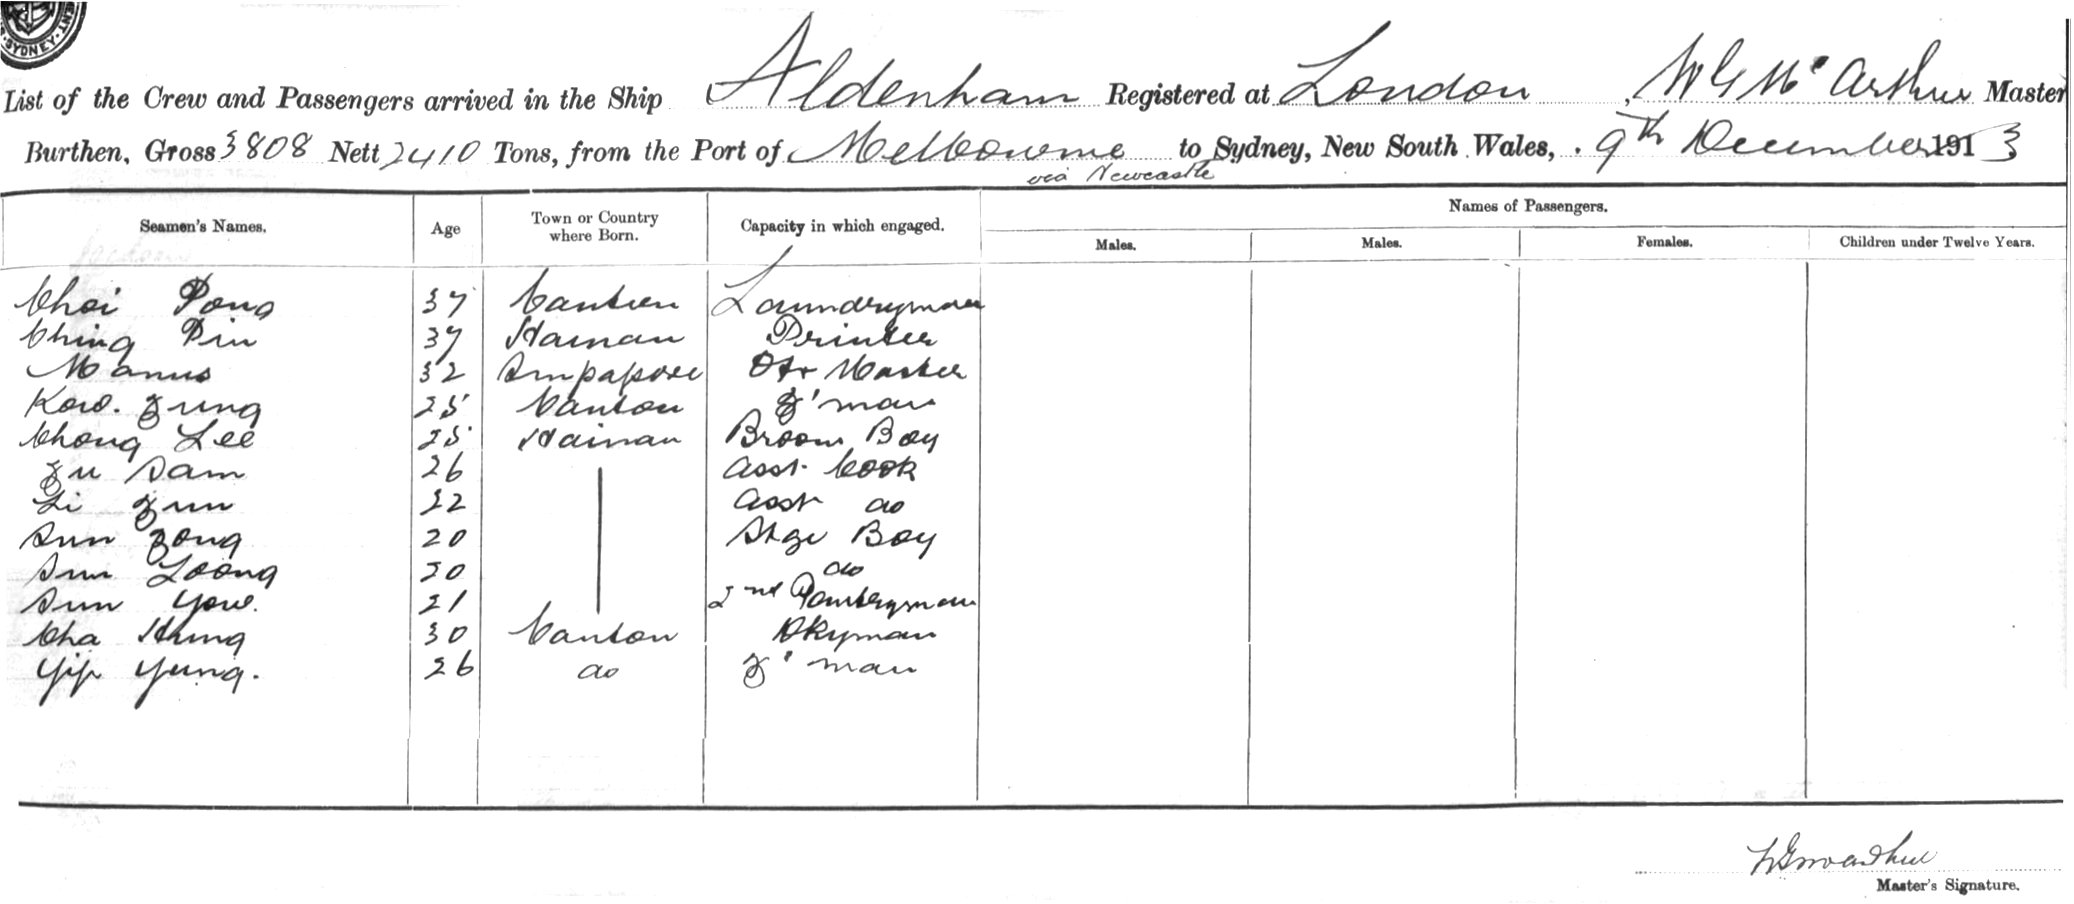 SYDNEY
List of the Crew and Passengers arrived in the Ship Aldenham Registered at London, W G McArthur Master
Burthen, Gross 3808 Nett 2410 Tons, from the Port of Melbourne to Sydney, New South Wales, 9th December 1913
via Newcastle
Seamen's Names. Age Town or Country where Born. Capacity in which engaged. Names of Passengers.
Males. Males. Females. Children under Twelve Years.
Choi Pong 37 Canton Laundryman
Ching Pin 37 Hainan Printer
Manus 32 Singapore Qtr Master
Kow. Fung 25 Canton F'man
Chong Lee 25 Hainan Broom Boy
Fu Sam 26 Asst. Cook
Li Fun 22 Asst do
Sun Fong 20 Stge Boy
Sun Loong 20 do
Sun Yow. 21 2nd Pantryman
Cha Hung 30 Canton Dkyman
Yip Yung. 26 do F'man
Master's Signature.